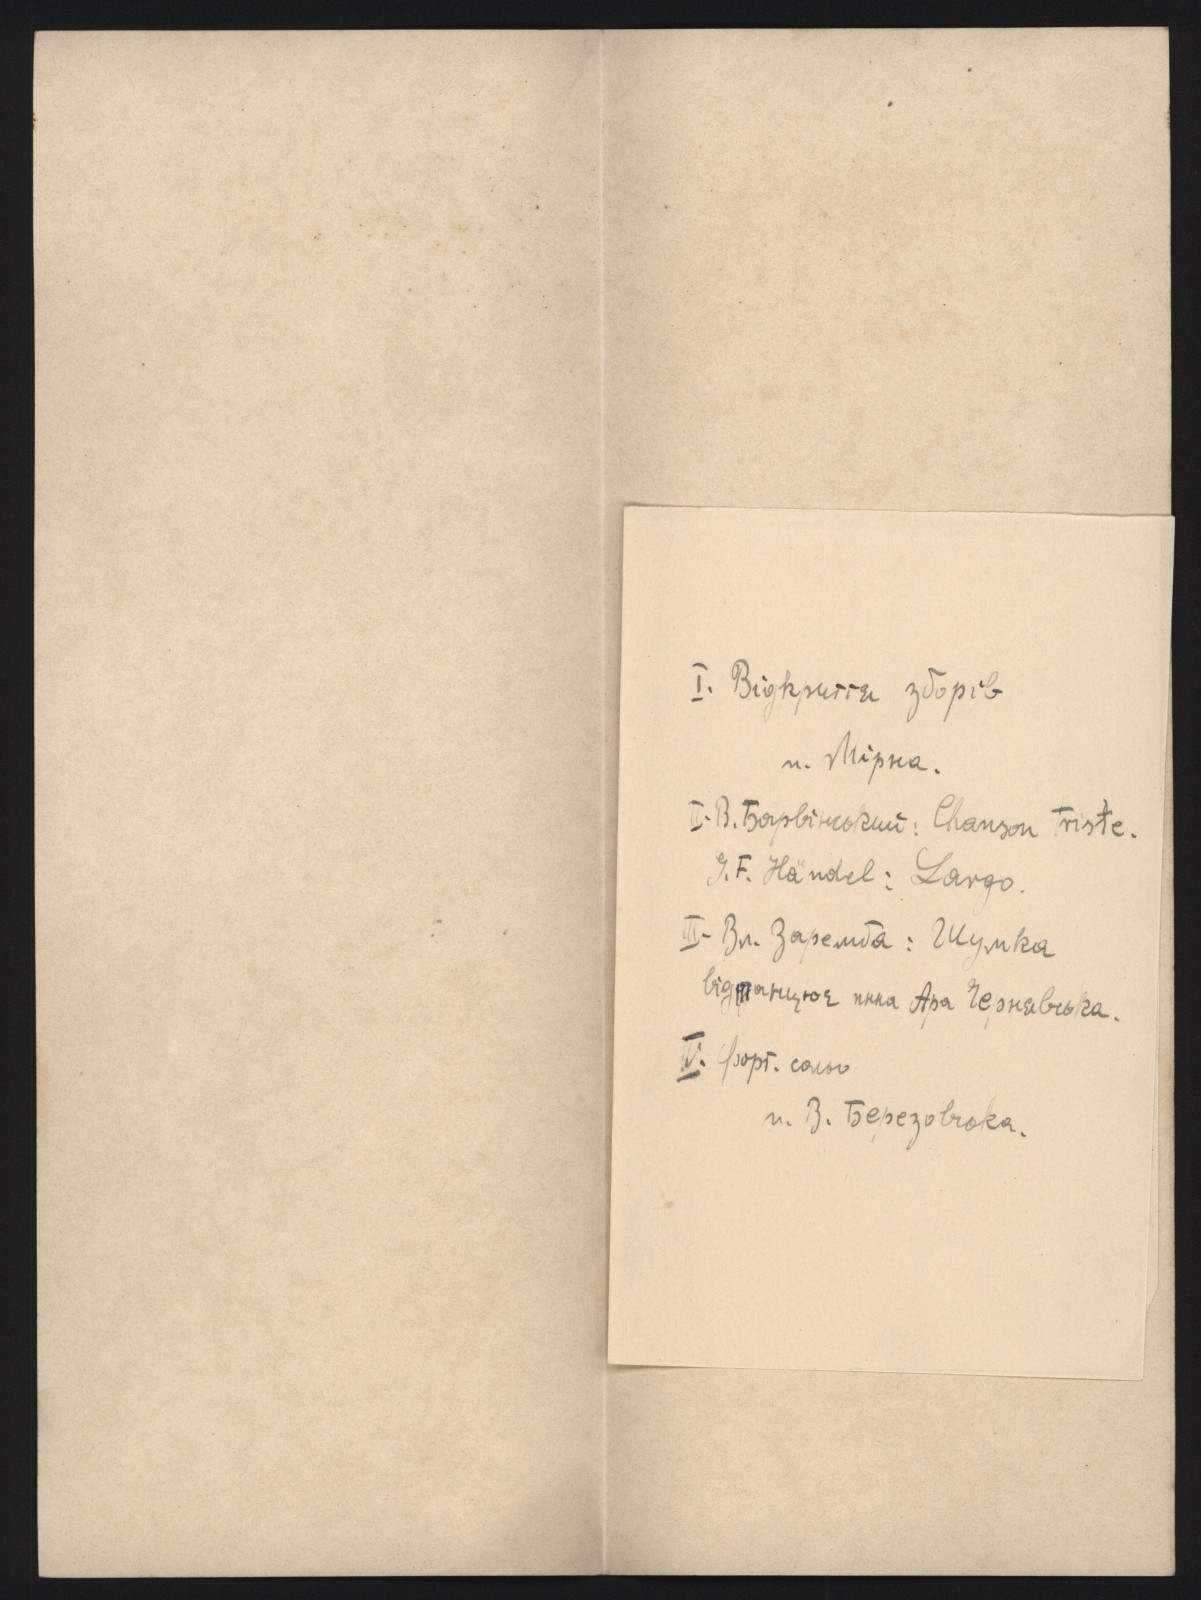 I. Відкриття зборів
п. Мірна.
II. В. Барвінський: Chanson triste.
G. F. Händel: Largo.
III. Вл. Заремба: Шумка
відтанцює пнна Ара Чернявська.
IV. Форт. сольо
п. В. Березовська.